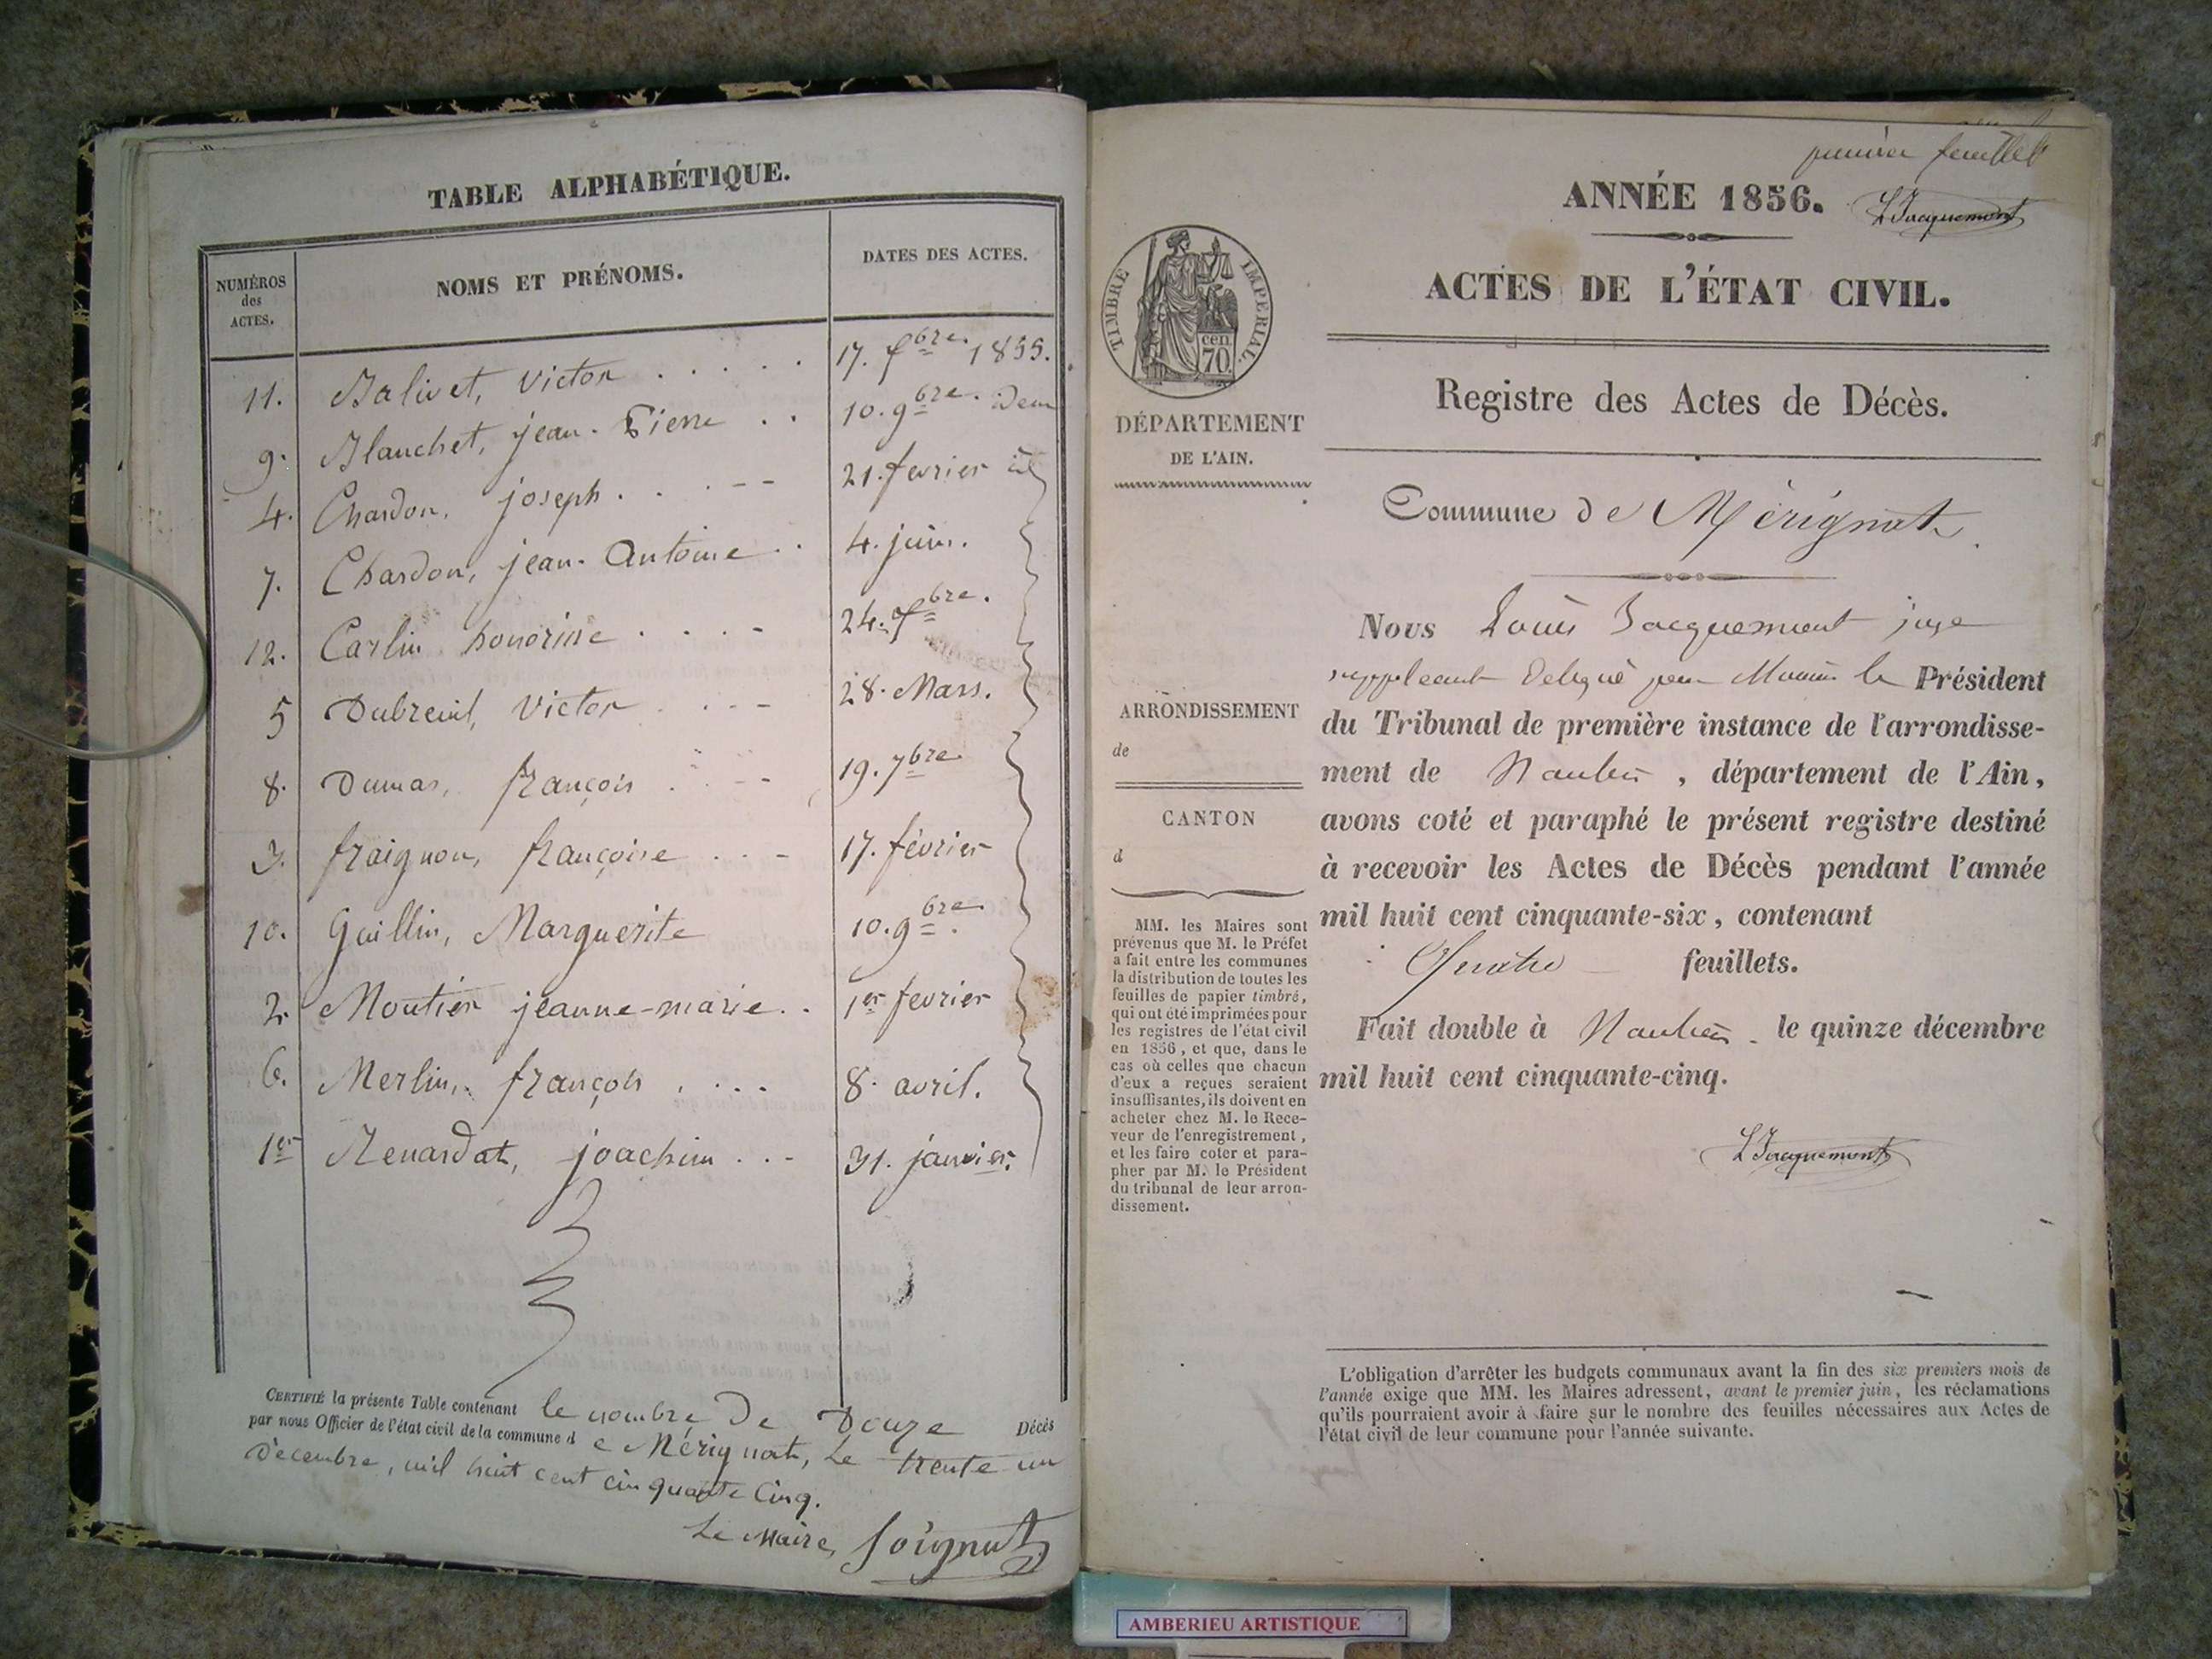 TABLE ALPHABÉTIQUE.
NUMÉROS des ACTES.
NOMS ET PRÉNOMS.
DATES DES ACTES.
11. Balivet, Victor . . . . . 17. Xbre. 1855.
9. Blanchet, jean-Pierre . . 10. 9bre.
4. Chardon, joseph . . . - - 21. fevrier id
7. Chardon, jean-Antoine . . 4. juin.
12. Carlin honorine . . . - 24. Xbre.
5 Dubreuil, Victor . . - - 28. Mars.
8. Dumas, françois . . - - 19. 7bre
3. fraignon, françoise . . - 17. février
10. Guillin, Marguerite 10. 9bre.
2. Moutier jeanne-marie. . 1er fevrier
6. Merlin, françois . . . - 8. avril.
1er Renardat, joachim . . - 31. janvier.
CERTIFIÉ la présente Table contenant le nombre de Douze Décès
par nous Officier de l'état civil de la commune d e Mérignat, Le trente un
décembre, mil huit cent cinquante Cinq.
Le Maire, Soignat
premier feuillet
ANNÉE 1856. LJacquemont
ACTES DE L'ÉTAT CIVIL.
Registre des Actes de Décès.
TIMBRE IMPERIAL.
cen.
70.
DÉPARTEMENT
DE L'AIN.
Commune de Mérignat
Nous Louis Jacquemont juge
suppleant délégué par Monsieur le Président
du Tribunal de première instance de l'arrondisse-
ment de Nantua, département de l'Ain,
avons coté et paraphé le présent registre destiné
à recevoir les Actes de Décès pendant l'année
mil huit cent cinquante-six, contenant
Quatre feuillets.
Fait double à Nantua le quinze décembre
mil huit cent cinquante-cinq.
LJacquemont
ARRONDISSEMENT
de
CANTON
d
MM. les Maires sont
prévenus que M. le Préfet
a fait entre les communes
la distribution de toutes les
feuilles de papier timbré,
qui ont été imprimées pour
les registres de l'état civil
en 1856, et que, dans le
cas où celles que chacun
d'eux a reçues seraient
insuffisantes, ils doivent en
acheter chez M. le Rece-
veur de l'enregistrement,
et les faire coter et para-
pher par M. le Président
du tribunal de leur arron-
dissement.
L'obligation d'arrêter les budgets communaux avant la fin des six premiers mois de
l'année exige que MM. les Maires adressent, avant le premier juin, les réclamations
qu'ils pourraient avoir à faire sur le nombre des feuilles nécessaires aux Actes de
l'état civil de leur commune pour l'année suivante.
AMBERIEU ARTISTIQUE